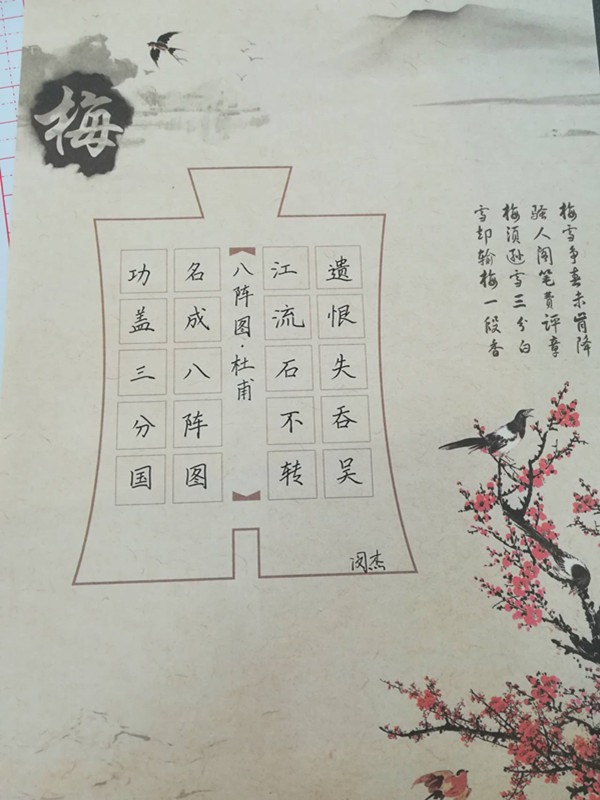 梅
功盖三分国
名成八阵图
八阵图·杜甫
江流石不转
遗恨失吞吴
闵杰
梅雪争春未肯降
骚人阁笔费评章
梅须逊雪三分白
雪却输梅一段香